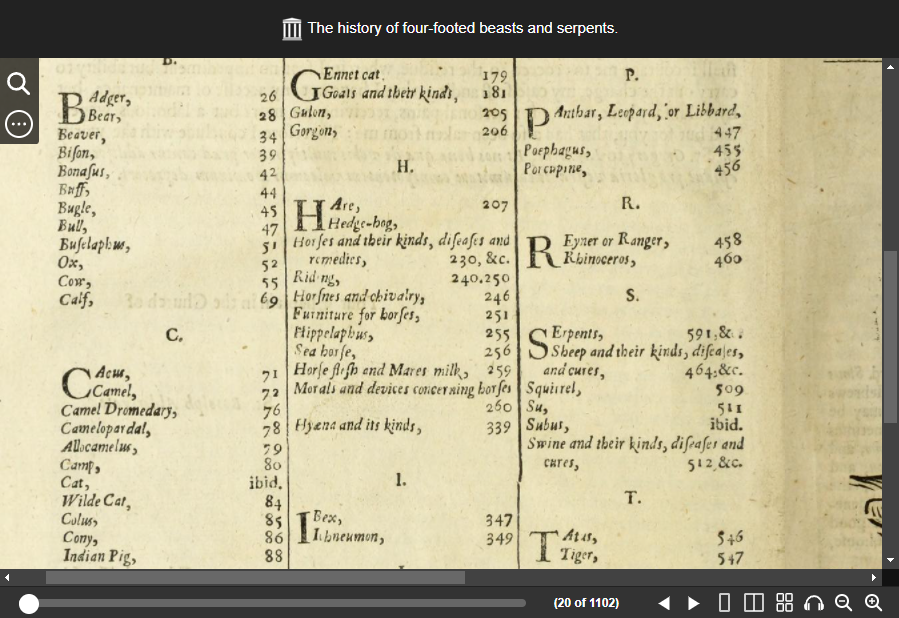 The history of four-footed beasts and serpents.
B.
BAdger, 26
Bear, 28
Beaver, 34
Bison, 39
Bonasus, 42
Buff, 44
Bugle, 45
Bull, 47
Buselaphus, 51
Ox, 52
Cow, 55
Calf, 69
C.
CAcus, 71
Camel, 72
Camel Dromedary, 76
Camelopardal, 78
Allocamelus, 79
Camp, 80
Cat, ibid.
Wilde Cat, 84
Colus, 85
Cony, 86
Indian Pig, 88
GEnnet cat, 179
Goats and their kinds, 181
Gulon, 205
Gorgon, 206
H.
HAre, 207
Hedge-hog,
Horses and their kinds, diseases and
remedies, 230, &c.
Riding, 240.250
Horsnes and chivalry, 246
Furniture for horses, 251
Hippelaphus, 255
Sea horse, 256
Horse flesh and Mares milk, 259
Morals and devices concerning horses
260
Hyæna and its kinds, 339
I.
IBex, 347
Ichneumon, 349
P.
PAnthar, Leopard, or Libbard,
447
Poephagus, 455
Porcupine, 456
R.
REyner or Ranger, 458
Rhinoceros, 460
S.
SErpents, 591,&c.
Sheep and their kinds, diseases,
and cures, 464,&c.
Squirrel, 509
Su, 511
Subus, ibid.
Swine and their kinds, diseases and
cures, 512,&c.
T.
TAtus, 546
Tiger, 547
(20 of 1102)